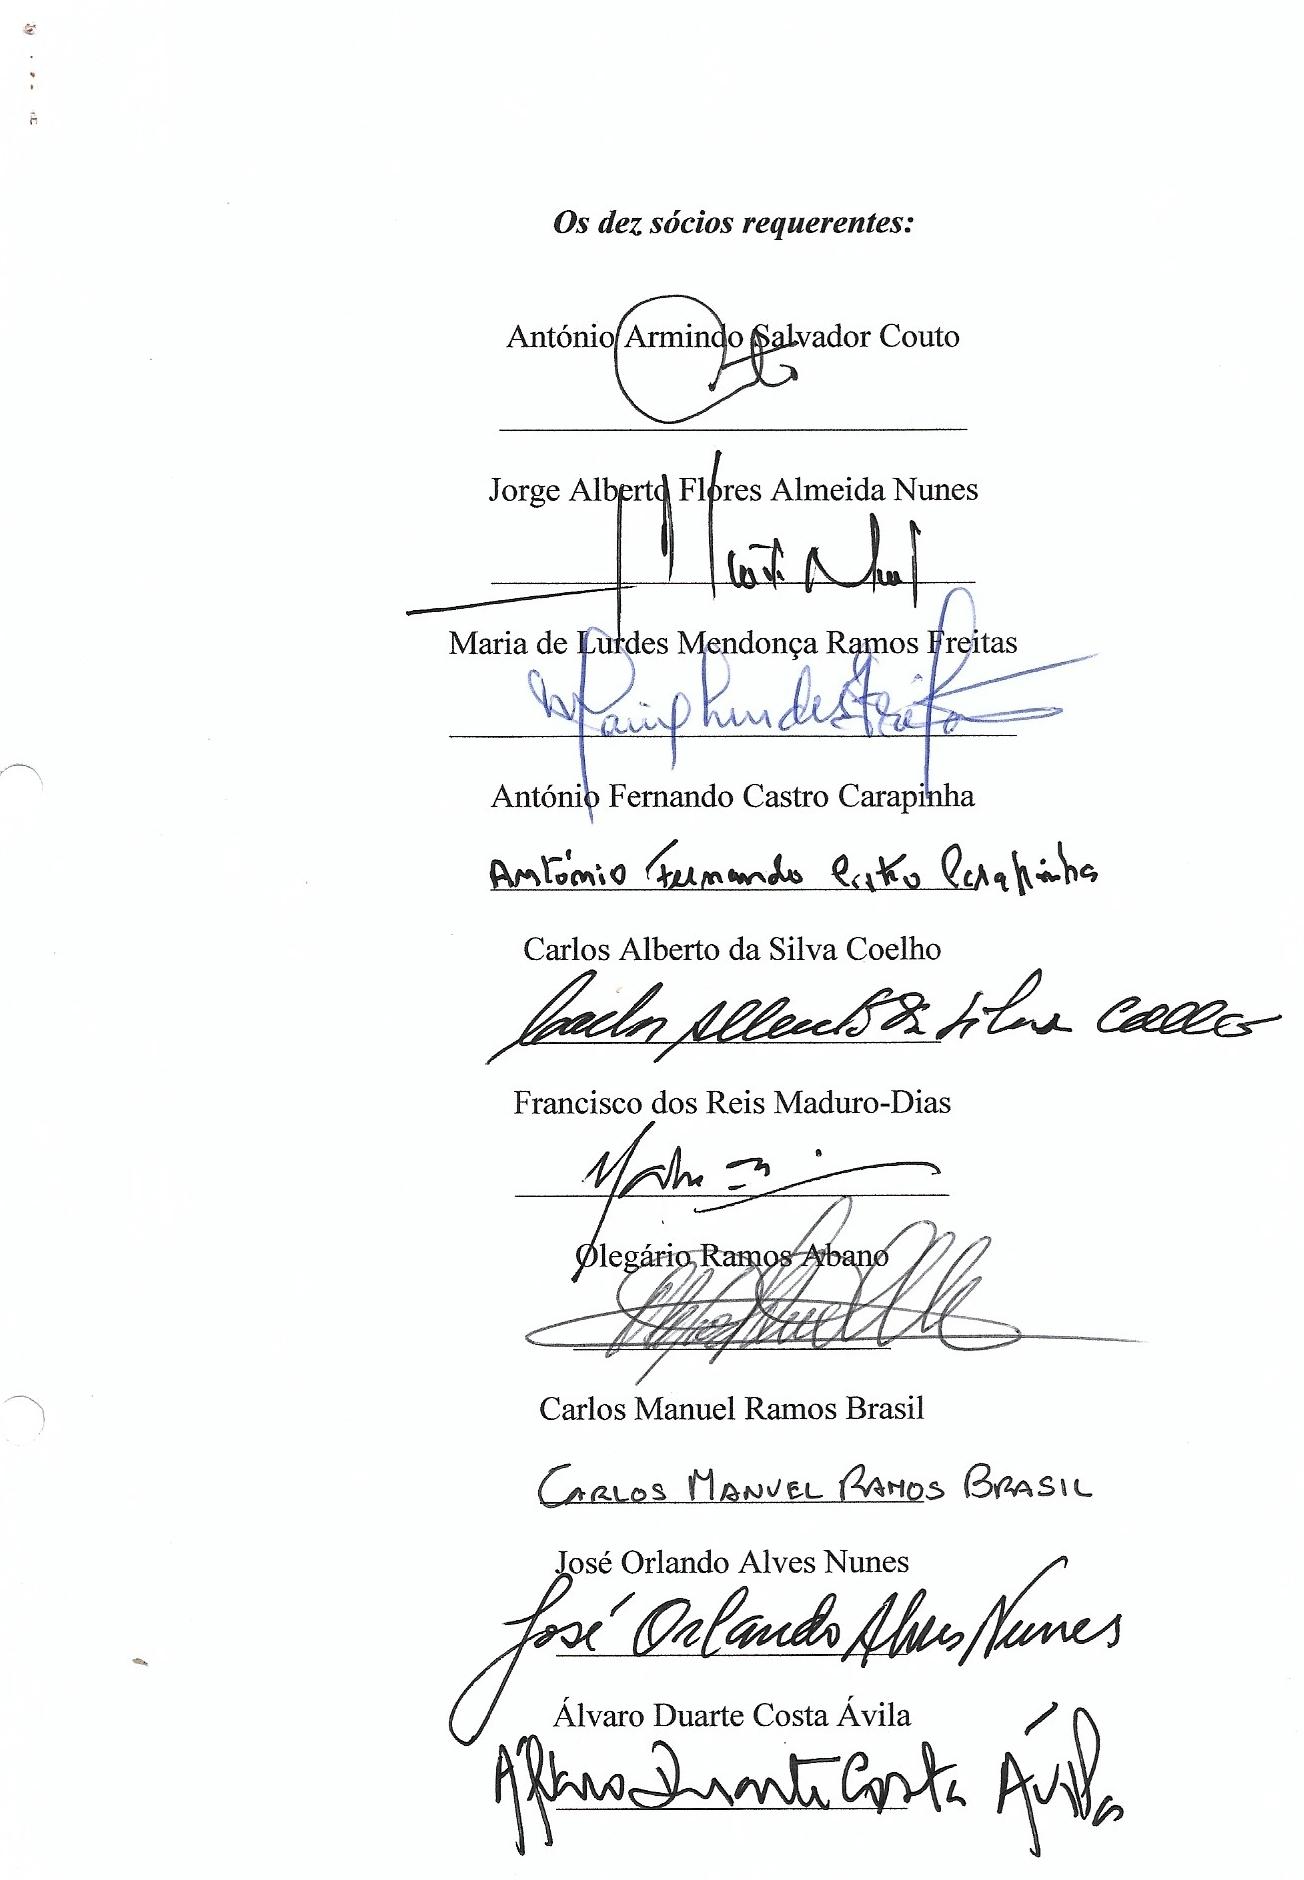 Os dez sócios requerentes:
António Armindo Salvador Couto
Jorge Alberto Flores Almeida Nunes
Maria de Lurdes Mendonça Ramos Freitas
António Fernando Castro Carapinha
António Fernando Castro Carapinha
Carlos Alberto da Silva Coelho
Carlos Alberto da Silva Coelho
Francisco dos Reis Maduro-Dias
Olegário Ramos Abano
Carlos Manuel Ramos Brasil
CARLOS MANUEL RAMOS BRASIL
José Orlando Alves Nunes
José Orlando Alves Nunes
Álvaro Duarte Costa Ávila
Álvaro Duarte Costa Ávila